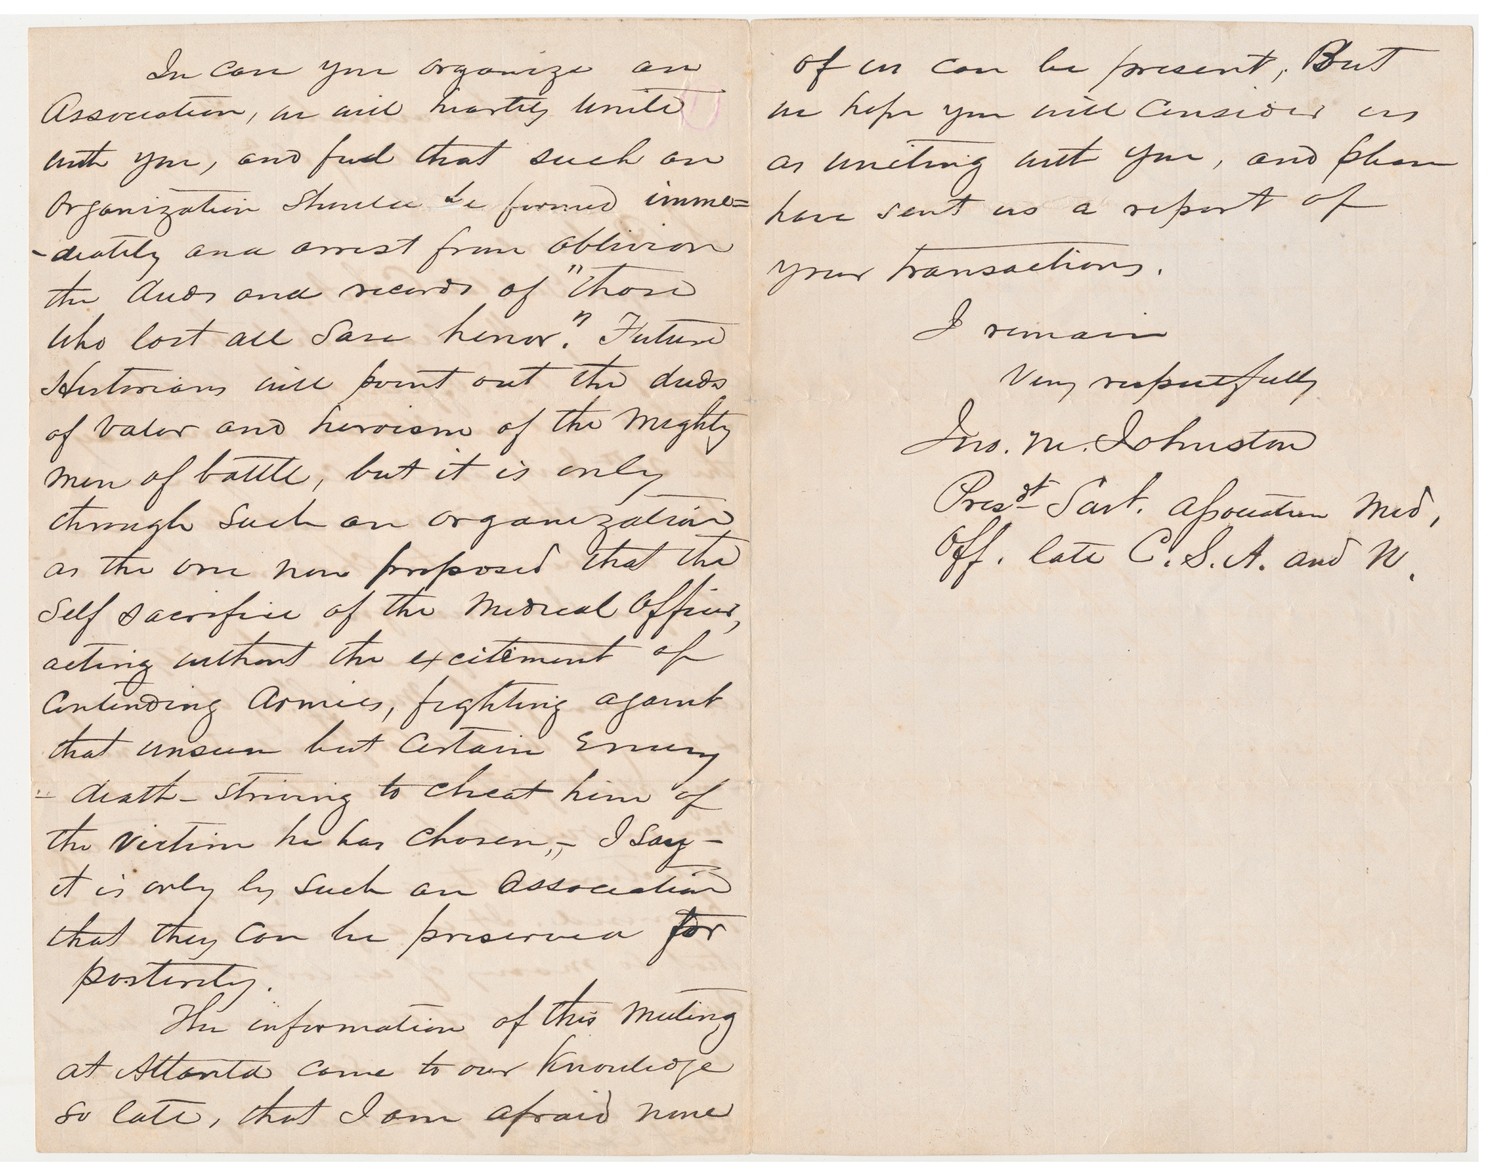 In case you organize an
Association, we will heartily unite
with you, and feel that such an
Organization should be formed imme=
-diately and arrest from oblivion
the deeds and records of "those
who lost all save honor." Future
Historians will point out the deeds
of valor and heroism of the Mighty
men of battle, but it is only
through such an organization
as the one now proposed that the
Self sacrifice of the Medical Officer,
acting without the excitement of
Contending Armies, fighting against
that unseen but Certain Enemy
- death - striving to cheat him of
the victim he has chosen, - I say -
it is only by such an Association
that they can be preserved for
posterity.
The information of this Meeting
at Atlanta came to our Knowledge
so late, that I am afraid none
of us can be present, But
we hope you will Consider us
as uniting with you, and please
have sent us a report of
your transactions.
I remain
Very respectfully
Jno. M. Johnston
Presdt Sart. Association Med,
Off. late C.S.A. and N.